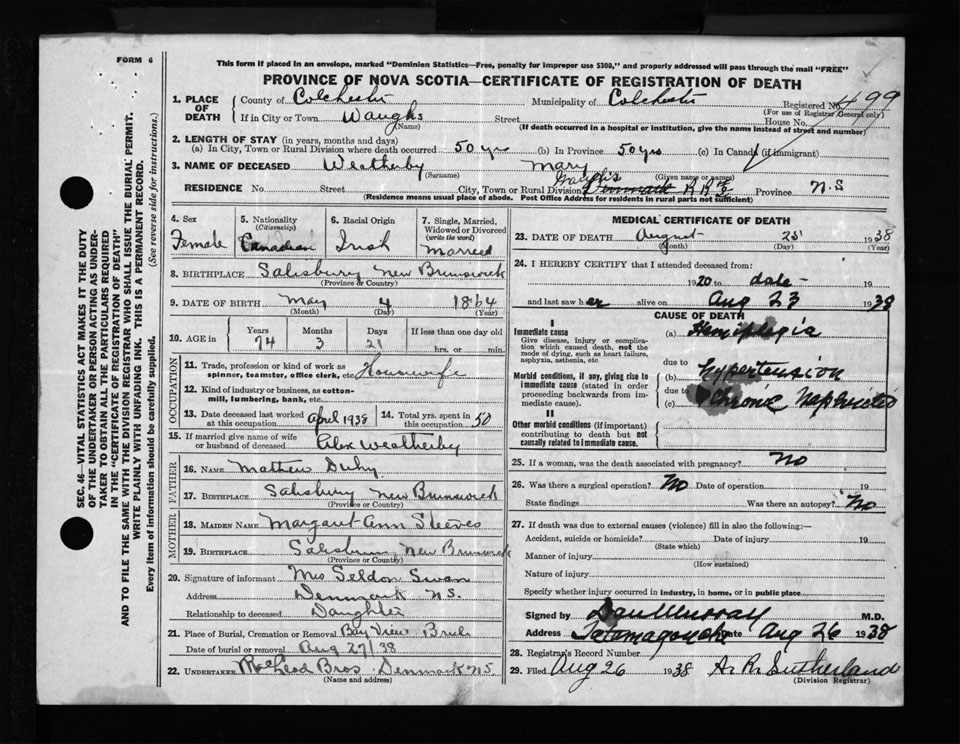 FORM 6
This form if placed in an envelope, marked "Dominion Statistics—Free, penalty for improper use $300," and properly addressed will pass through the mail "FREE"
PROVINCE OF NOVA SCOTIA—CERTIFICATE OF REGISTRATION OF DEATH
1. PLACE OF DEATH County of Colchester Municipality of Colchester Registered No. 499
(For use of Registrar General only)
If in City or Town Waughs Street House No.
(Name) (If death occurred in a hospital or institution, give the name instead of street and number)
2. LENGTH OF STAY (in years, months and days)
(a) In City, Town or Rural Division where death occurred 50 yrs (b) In Province 50 yrs (c) In Canada (if immigrant)
3. NAME OF DECEASED Weatherby Mary
(Surname) (Given name or names)
RESIDENCE No. Street City, Town or Rural Division Denmark RR Province N.S
(Residence means usual place of abode. Post Office Address for residents in rural parts not sufficient)
SEC. 46—VITAL STATISTICS ACT MAKES IT THE DUTY
OF THE UNDERTAKER OR PERSON ACTING AS UNDER-
TAKER TO OBTAIN ALL THE PARTICULARS REQUIRED
IN THE "CERTIFICATE OF REGISTRATION OF DEATH"
AND TO FILE THE SAME WITH THE DIVISION REGISTRAR WHO SHALL ISSUE THE BURIAL PERMIT.
WRITE PLAINLY WITH UNFADING INK. THIS IS A PERMANENT RECORD.
Every item of information should be carefully supplied. (See reverse side for instructions.)
4. Sex Female
5. Nationality (Citizenship) Canadian
6. Racial Origin Irish
7. Single, Married, Widowed or Divorced (write the word) Married
8. BIRTHPLACE Salisbury New Brunswick
(Province or Country)
9. DATE OF BIRTH May 4 1864
(Month) (Day) (Year)
10. AGE in Years 74 Months 3 Days 21 If less than one day old hrs. or min.
OCCUPATION
11. Trade, profession or kind of work as spinner, teamster, office clerk, etc. Housewife
12. Kind of industry or business, as cotton-mill, lumbering, bank, etc.
13. Date deceased last worked at this occupation April 1938
14. Total yrs. spent in this occupation 50
15. If married give name of wife or husband of deceased Alex Weatherby
FATHER
16. NAME Mathew Duhy
17. BIRTHPLACE Salisbury New Brunswick
(Province or Country)
MOTHER
18. MAIDEN NAME Margaret Ann Steeves
19. BIRTHPLACE Salisbury New Brunswick
(Province or Country)
20. Signature of informant Mrs Seldon Swan
Address Denmark N.S.
Relationship to deceased Daughter
21. Place of Burial, Cremation or Removal Bay View Brule
Date of burial or removal Aug 27/38
22. UNDERTAKER Bros. Denmark N.S
(Name and address)
MEDICAL CERTIFICATE OF DEATH
23. DATE OF DEATH August 25 1938
(Month) (Day) (Year)
24. I HEREBY CERTIFY that I attended deceased from:
1920 to date 19
and last saw her alive on Aug 23 1938
CAUSE OF DEATH
I
Immediate cause (a) Hemiplegia
Give disease, injury or complication which caused death, not the mode of dying, such as heart failure, asphyxia, asthenia, etc.
due to
Morbid conditions, if any, giving rise to immediate cause (stated in order proceeding backwards from immediate cause).
(b) Hypertension
due to
(c) Chronic Nephritis
II
Other morbid conditions (if important) contributing to death but not causally related to immediate cause.
25. If a woman, was the death associated with pregnancy? No
26. Was there a surgical operation? No Date of operation 19
State findings Was there an autopsy? No
27. If death was due to external causes (violence) fill in also the following:—
Accident, suicide or homicide? Date of injury 19
(State which)
Manner of injury
(How sustained)
Nature of injury
Specify whether injury occurred in industry, in home, or in public place
Signed by Dan Murray M.D.
Address Tatamagouche Date Aug 26 1938
28. Registrar's Record Number
29. Filed Aug 26 1938 A. R. Sutherland
(Division Registrar)